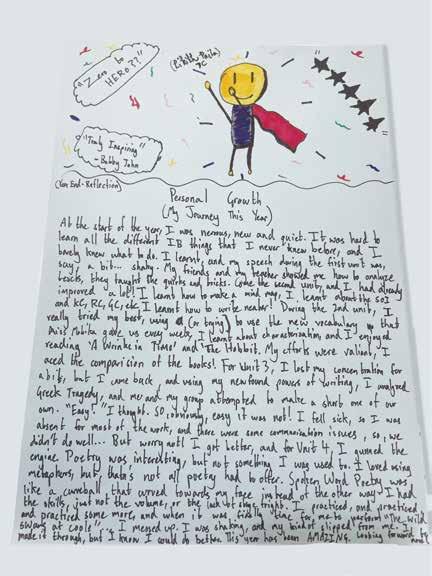 "Zero to
HERO??"
7C
"Truly Inspiring"
-Bobby John
(Year End-Reflection)
Personal Growth
(My Journey This Year)
At the start of the year, I was nervous, new and quiet. It was hard to
learn all the different IB things that I never knew before, and I
barely knew what to do. I learnt, and my speech during the first unit was,
say, a bit... shaky. My friends and my teacher showed me how to analyze
texts, they taught the quirks and tricks. Come the second unit, and I had already
improved a lot! I learnt how to make a mind map, I learnt about the SOI
and KC, RC, GC, etc. I learnt how to write neater! During the 2nd unit, I
really tried my best, using (or trying) to use the new vocabulary that
Miss gave us every week, I learnt about characterisation, and I enjoyed
reading 'A Wrinkle in Time' and 'The Hobbit. My efforts were valiant, I
aced the comparision of the books! For Unit 3, I lost my concentration for
a bit, but I came back, and using my newfound powers of writing, I analyzed
Greek Tragedy, and me and my group attempted to make a short one of our
own. "Easy!" I thought. SO, obviously, easy it was not! I fell sick, so I was
absent for most of the work, and there were some communication issues, so, we
didn't do well... But worry not! I got better, and for Unit 4, I gunned the
engine. Poetry was interesting, but not something I was used to. I loved using
metaphors, but that's not all poetry had to offer. Spoken Word Poetry was
like a curveball that curved towards my face instead of the other way. I had
the skills, just not the volume, or the lack of stage fright. I practiced, and practiced
and practiced some more, and when it was finally time for me to perform "The wild
swans at coole", I messed up. I was shaking, and my words slipped from me. I
made it through, but I know I could do better. This year has been AMAZING. Looking forward